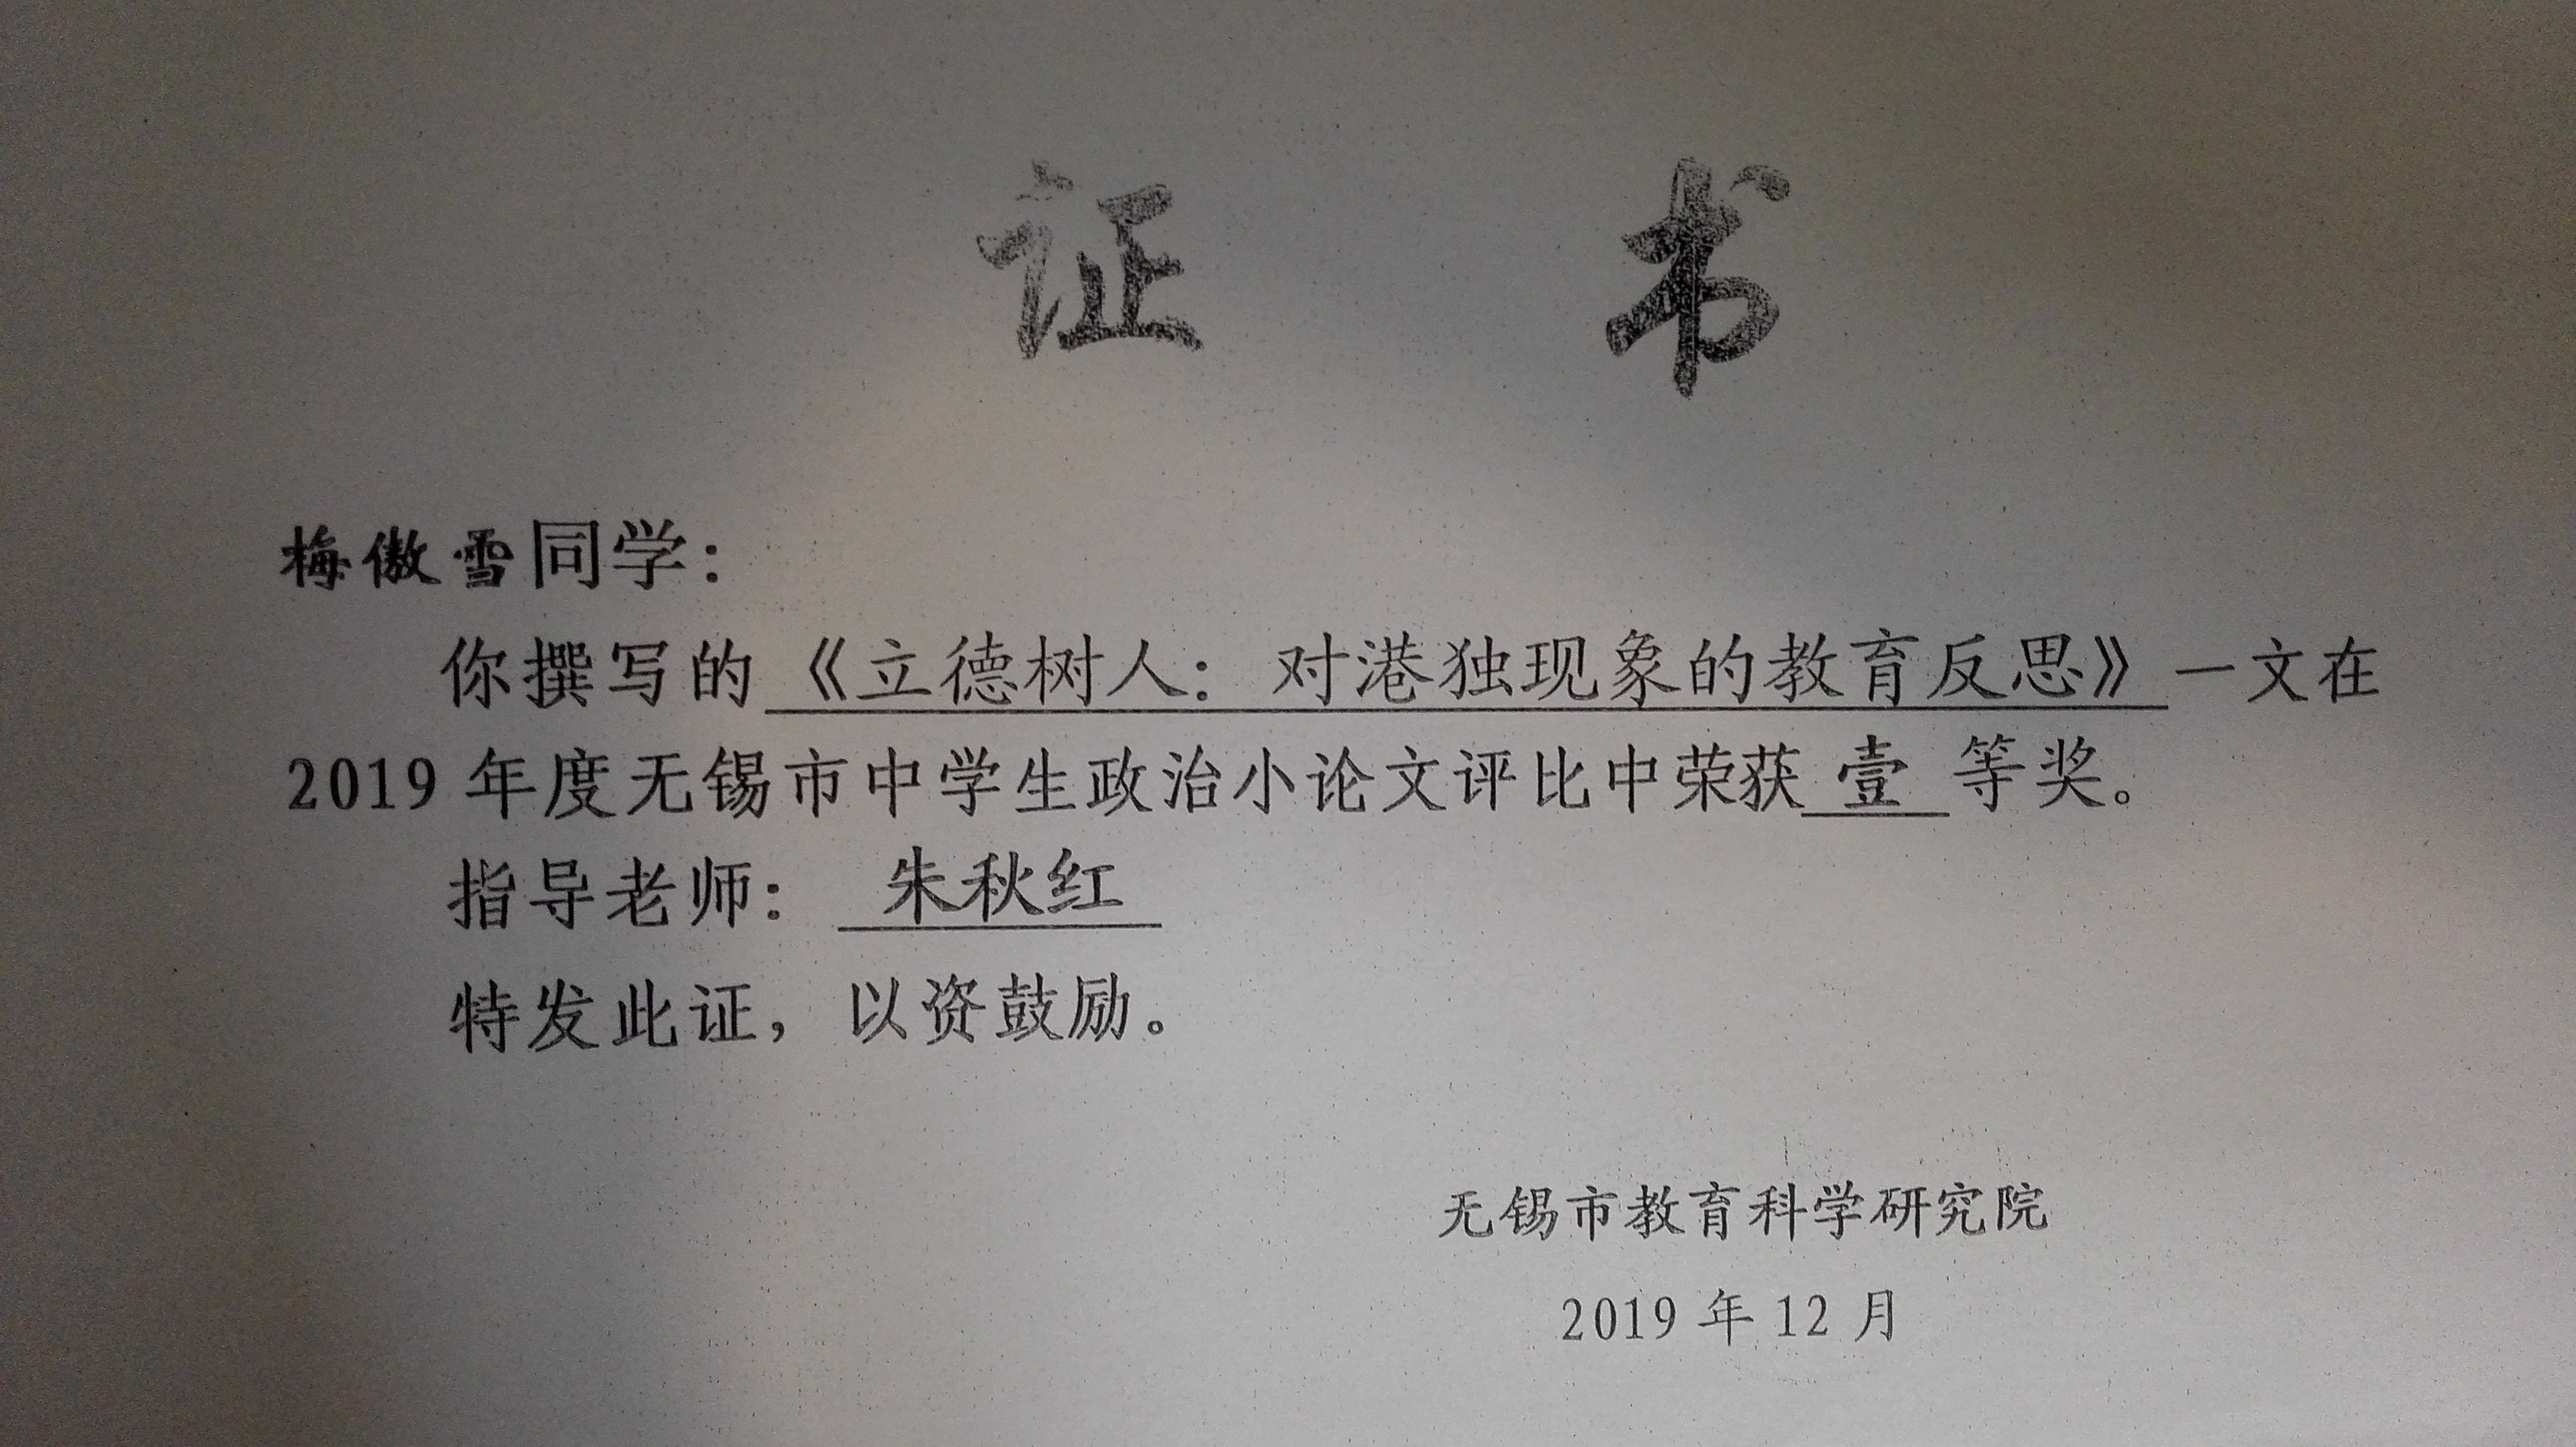 证 书
梅傲雪同学：
你撰写的《立德树人：对港独现象的教育反思》一文在
2019 年度无锡市中学生政治小论文评比中荣获 壹 等奖。
指导老师： 朱秋红
特发此证，以资鼓励。
无锡市教育科学研究院
2019 年 12 月